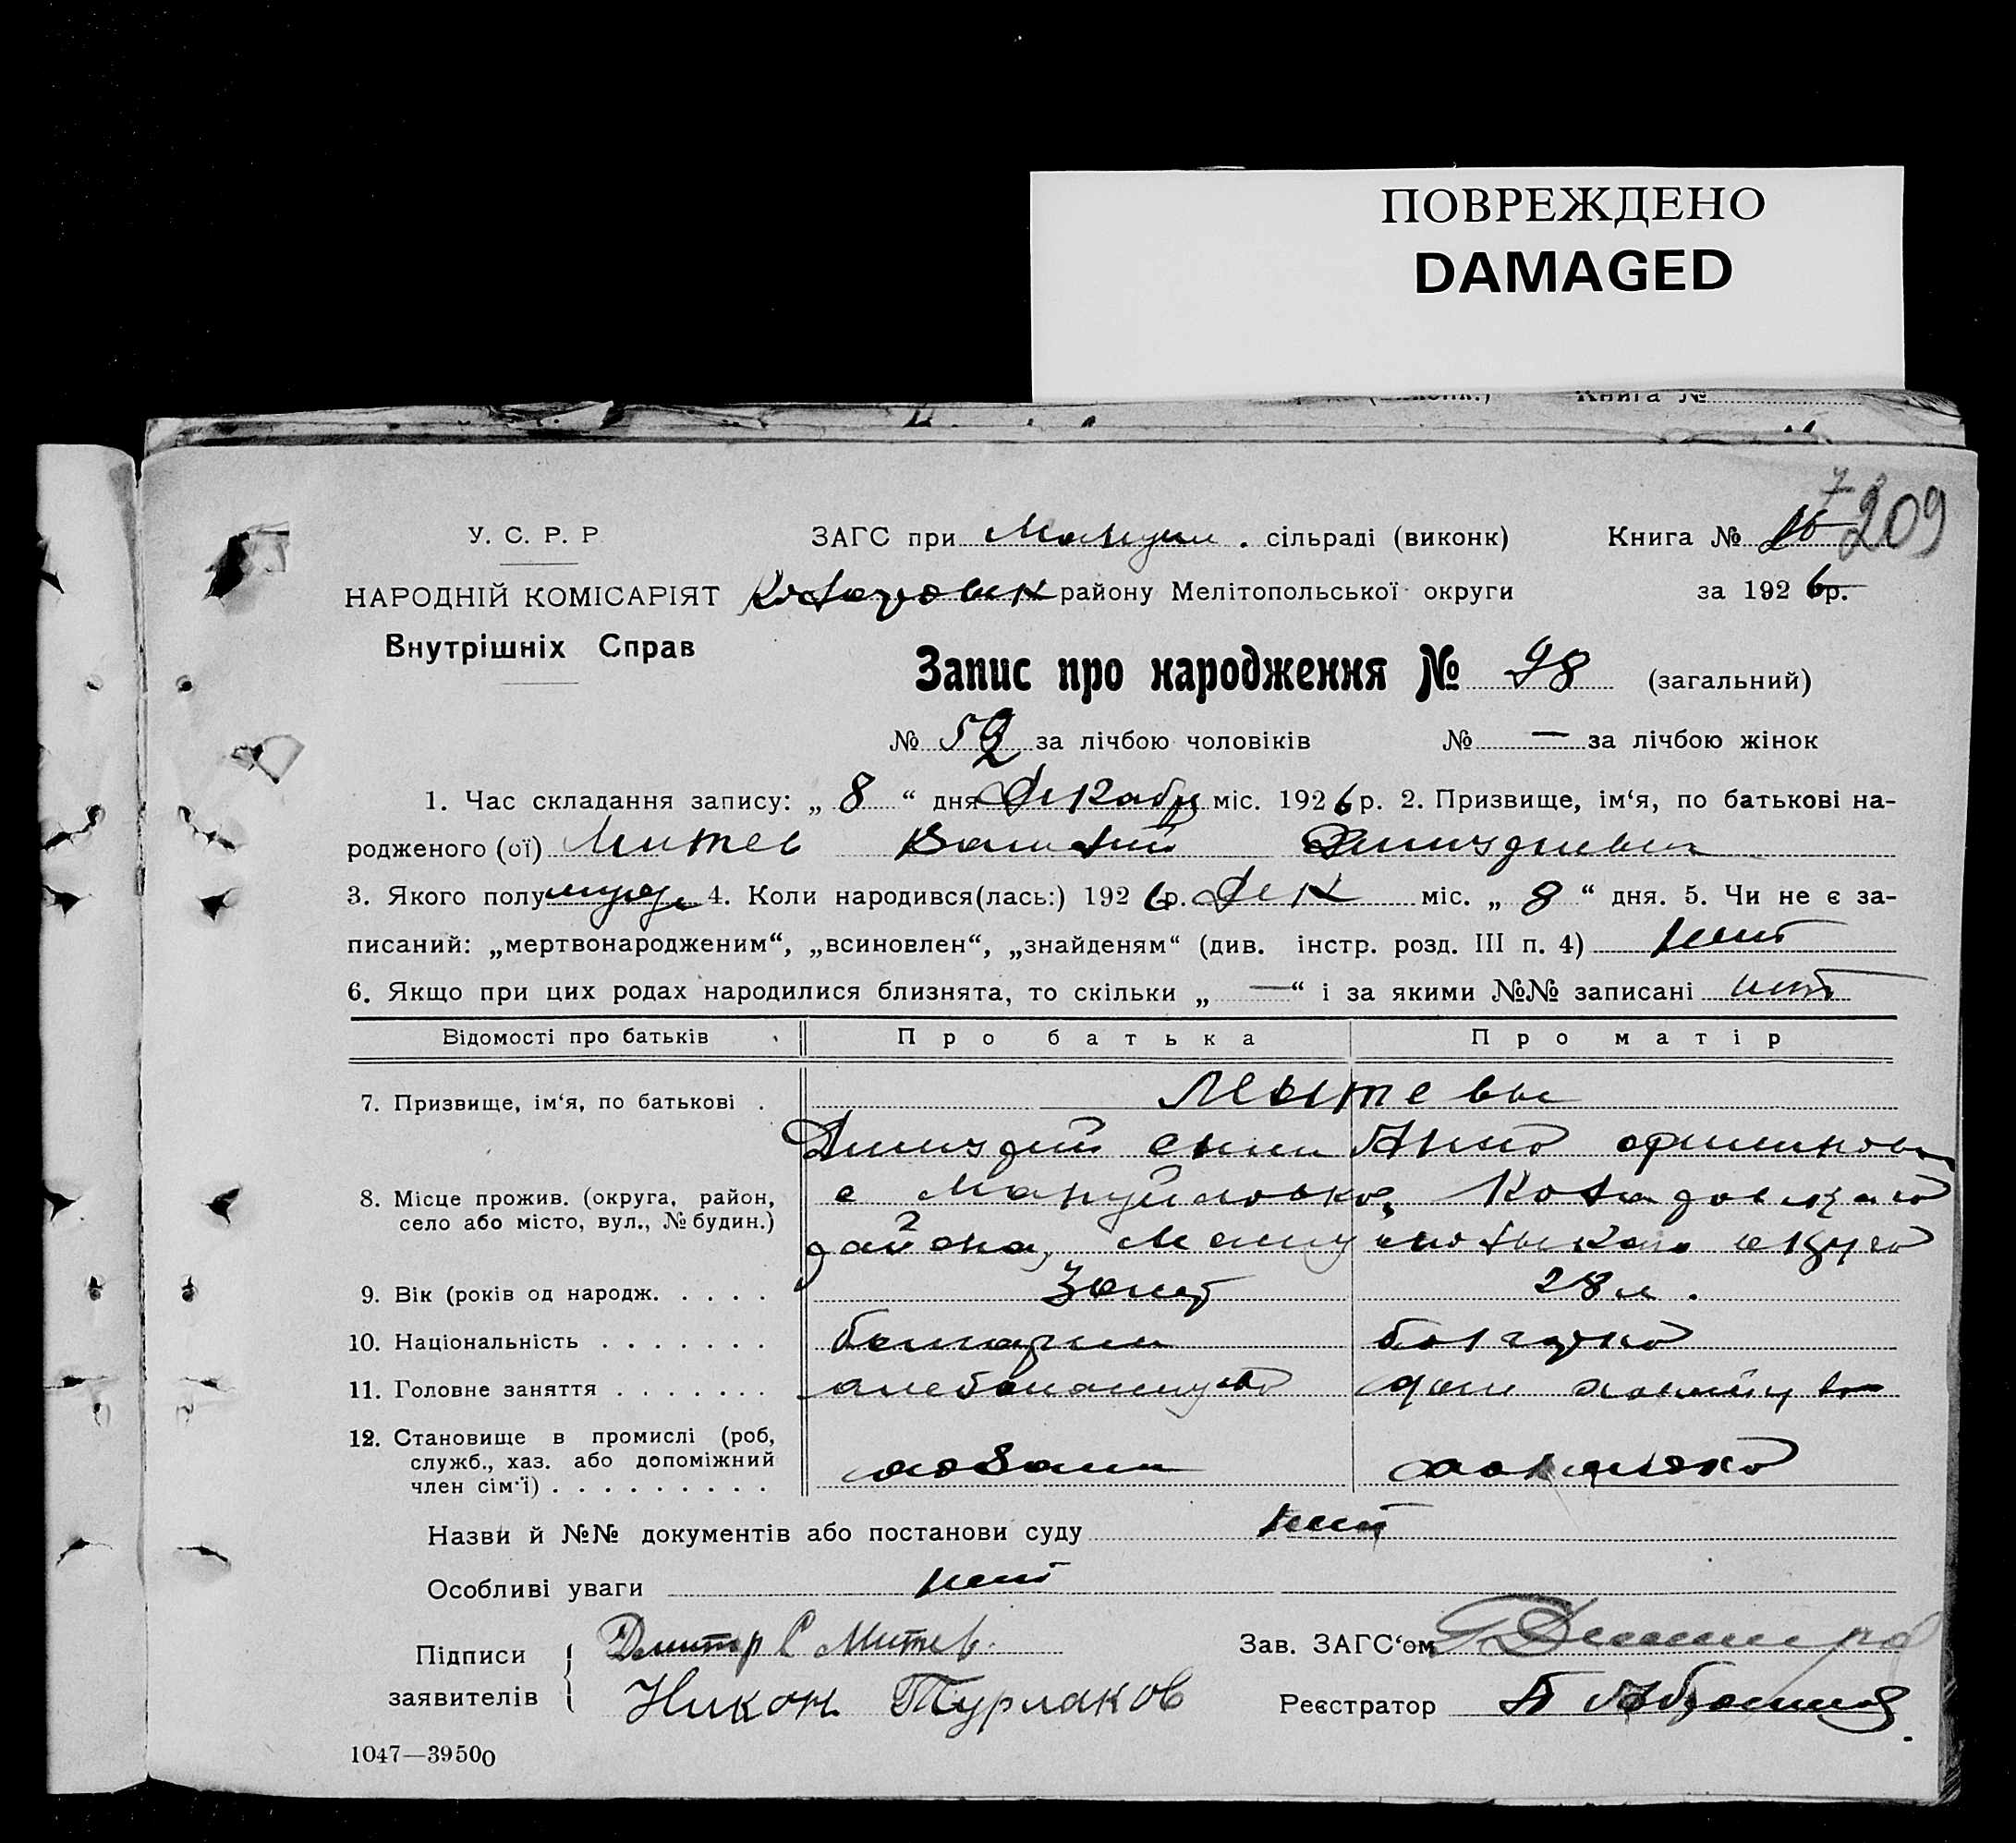 ПОВРЕЖДЕНО
DAMAGED
Книга №
7
209
У. С. Р. Р
НАРОДНІЙ КОМІСАРІЯТ
Внутрішніх Справ
ЗАГС при Мануил. сільраді (виконк)
Книга №
району Мелітопольської округи
за 1926 р.
Запис про народження № 98 (загальний)
№ 52 за лічбою чоловіків № — за лічбою жінок
1. Час складання запису: „ 8 “ дня Декабр міс. 1926 р. 2. Призвище, ім‘я, по батькові на-
родженого (ої) Митев Василий Дмитриевич
3. Якого полу муж 4. Коли народився(лась:) 1926 р. Дек міс. „ 8 “ дня. 5. Чи не є за-
писаний: „мертвонародженим“, „всиновлен“, „знайденям“ (див. інстр. розд. III п. 4) нет
6. Якщо при цих родах народилися близнята, то скільки „ — “ і за якими №№ записані нет
Відомості про батьків
Про батька
Про матір
7. Призвище, ім‘я, по батькові .
Митевы
Дмитрий Анна
8. Місце прожив. (округа, район,
село або місто, вул., № будин.)
с Мануйловка,
района, округа
9. Вік (років од народж. . . . .
30 лет
28 л.
10. Національність . . . . . . .
болгарин
болгарка
11. Головне заняття . . . . . . .
хлебопашество
дом хозяйство
12. Становище в промислі (роб,
служб., хаз. або допоміжний
член сім‘ї) . . . . . . . . .
хозяин
хозяйка
Назви й №№ документів або постанови суду нет
Особливі уваги нет
Підписи
заявителів
Дмитр С Митев.
Никон Турлаков
Зав. ЗАГС‘ом
Реєстратор
1047—39500